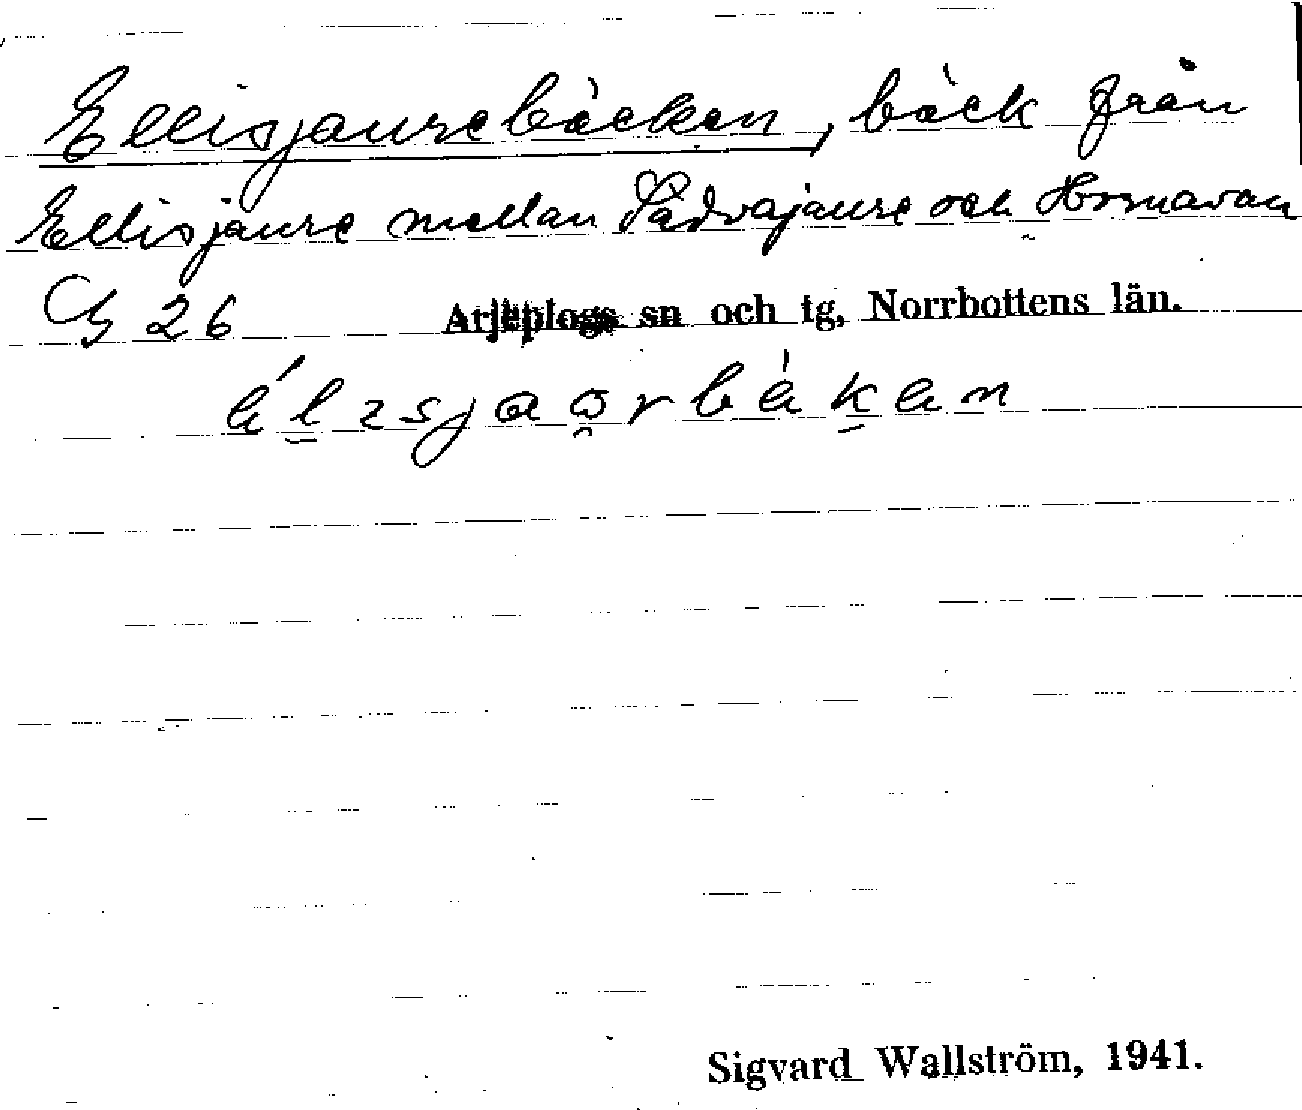 Ellisjaurebäcken, bäck från
Ellisjaure mellan Sädvajaure och Hornavan
26 Arjeplogs sn och tg, Norrbottens län.
Sigvard Wallström, 1941.